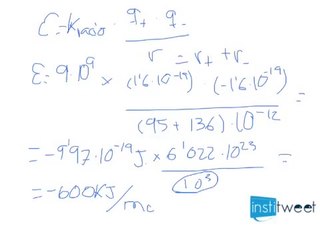 E=Kvacío · q₊ q₋
r = r₊ + r₋
E = 9·10⁹ × (1'6·10⁻¹⁹) · (-1'6·10⁻¹⁹) =
(95 + 136)·10⁻¹²
= -9'97·10⁻¹⁹ J × 6'022·10²³ =
10³
= -600KJ/
institweet